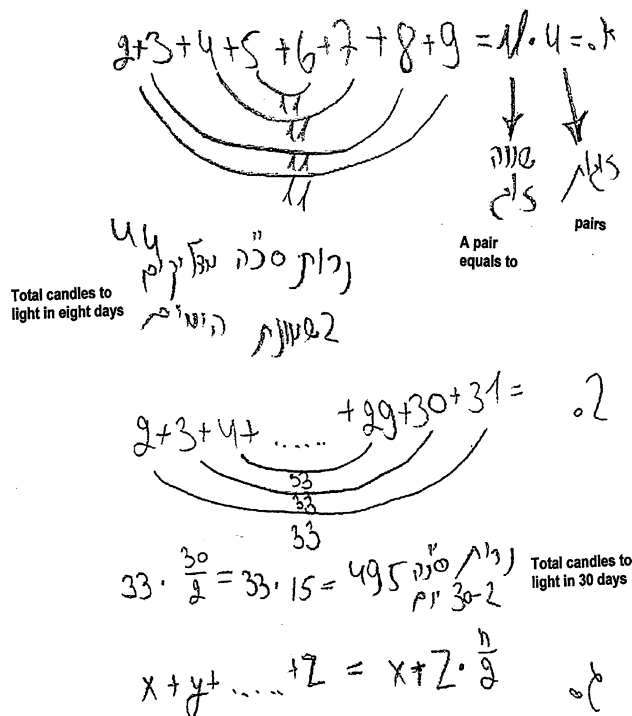 2+3+4+5+6+7+8+9 = 11·4 = א.
11
11
11
11
שווה זוג
A pair equals to
זוגות
pairs
44
נרות סה"כ מדליקים
בשמונת הימים
Total candles to light in eight days
2+3+4+ ...... +29+30+31 = ב.
33
33
33
33 · 30/2 = 33 · 15 = 495 נרות סה"כ
ב-30 יום
Total candles to light in 30 days
x + y + ...... + z = x + z · n/2 ג.